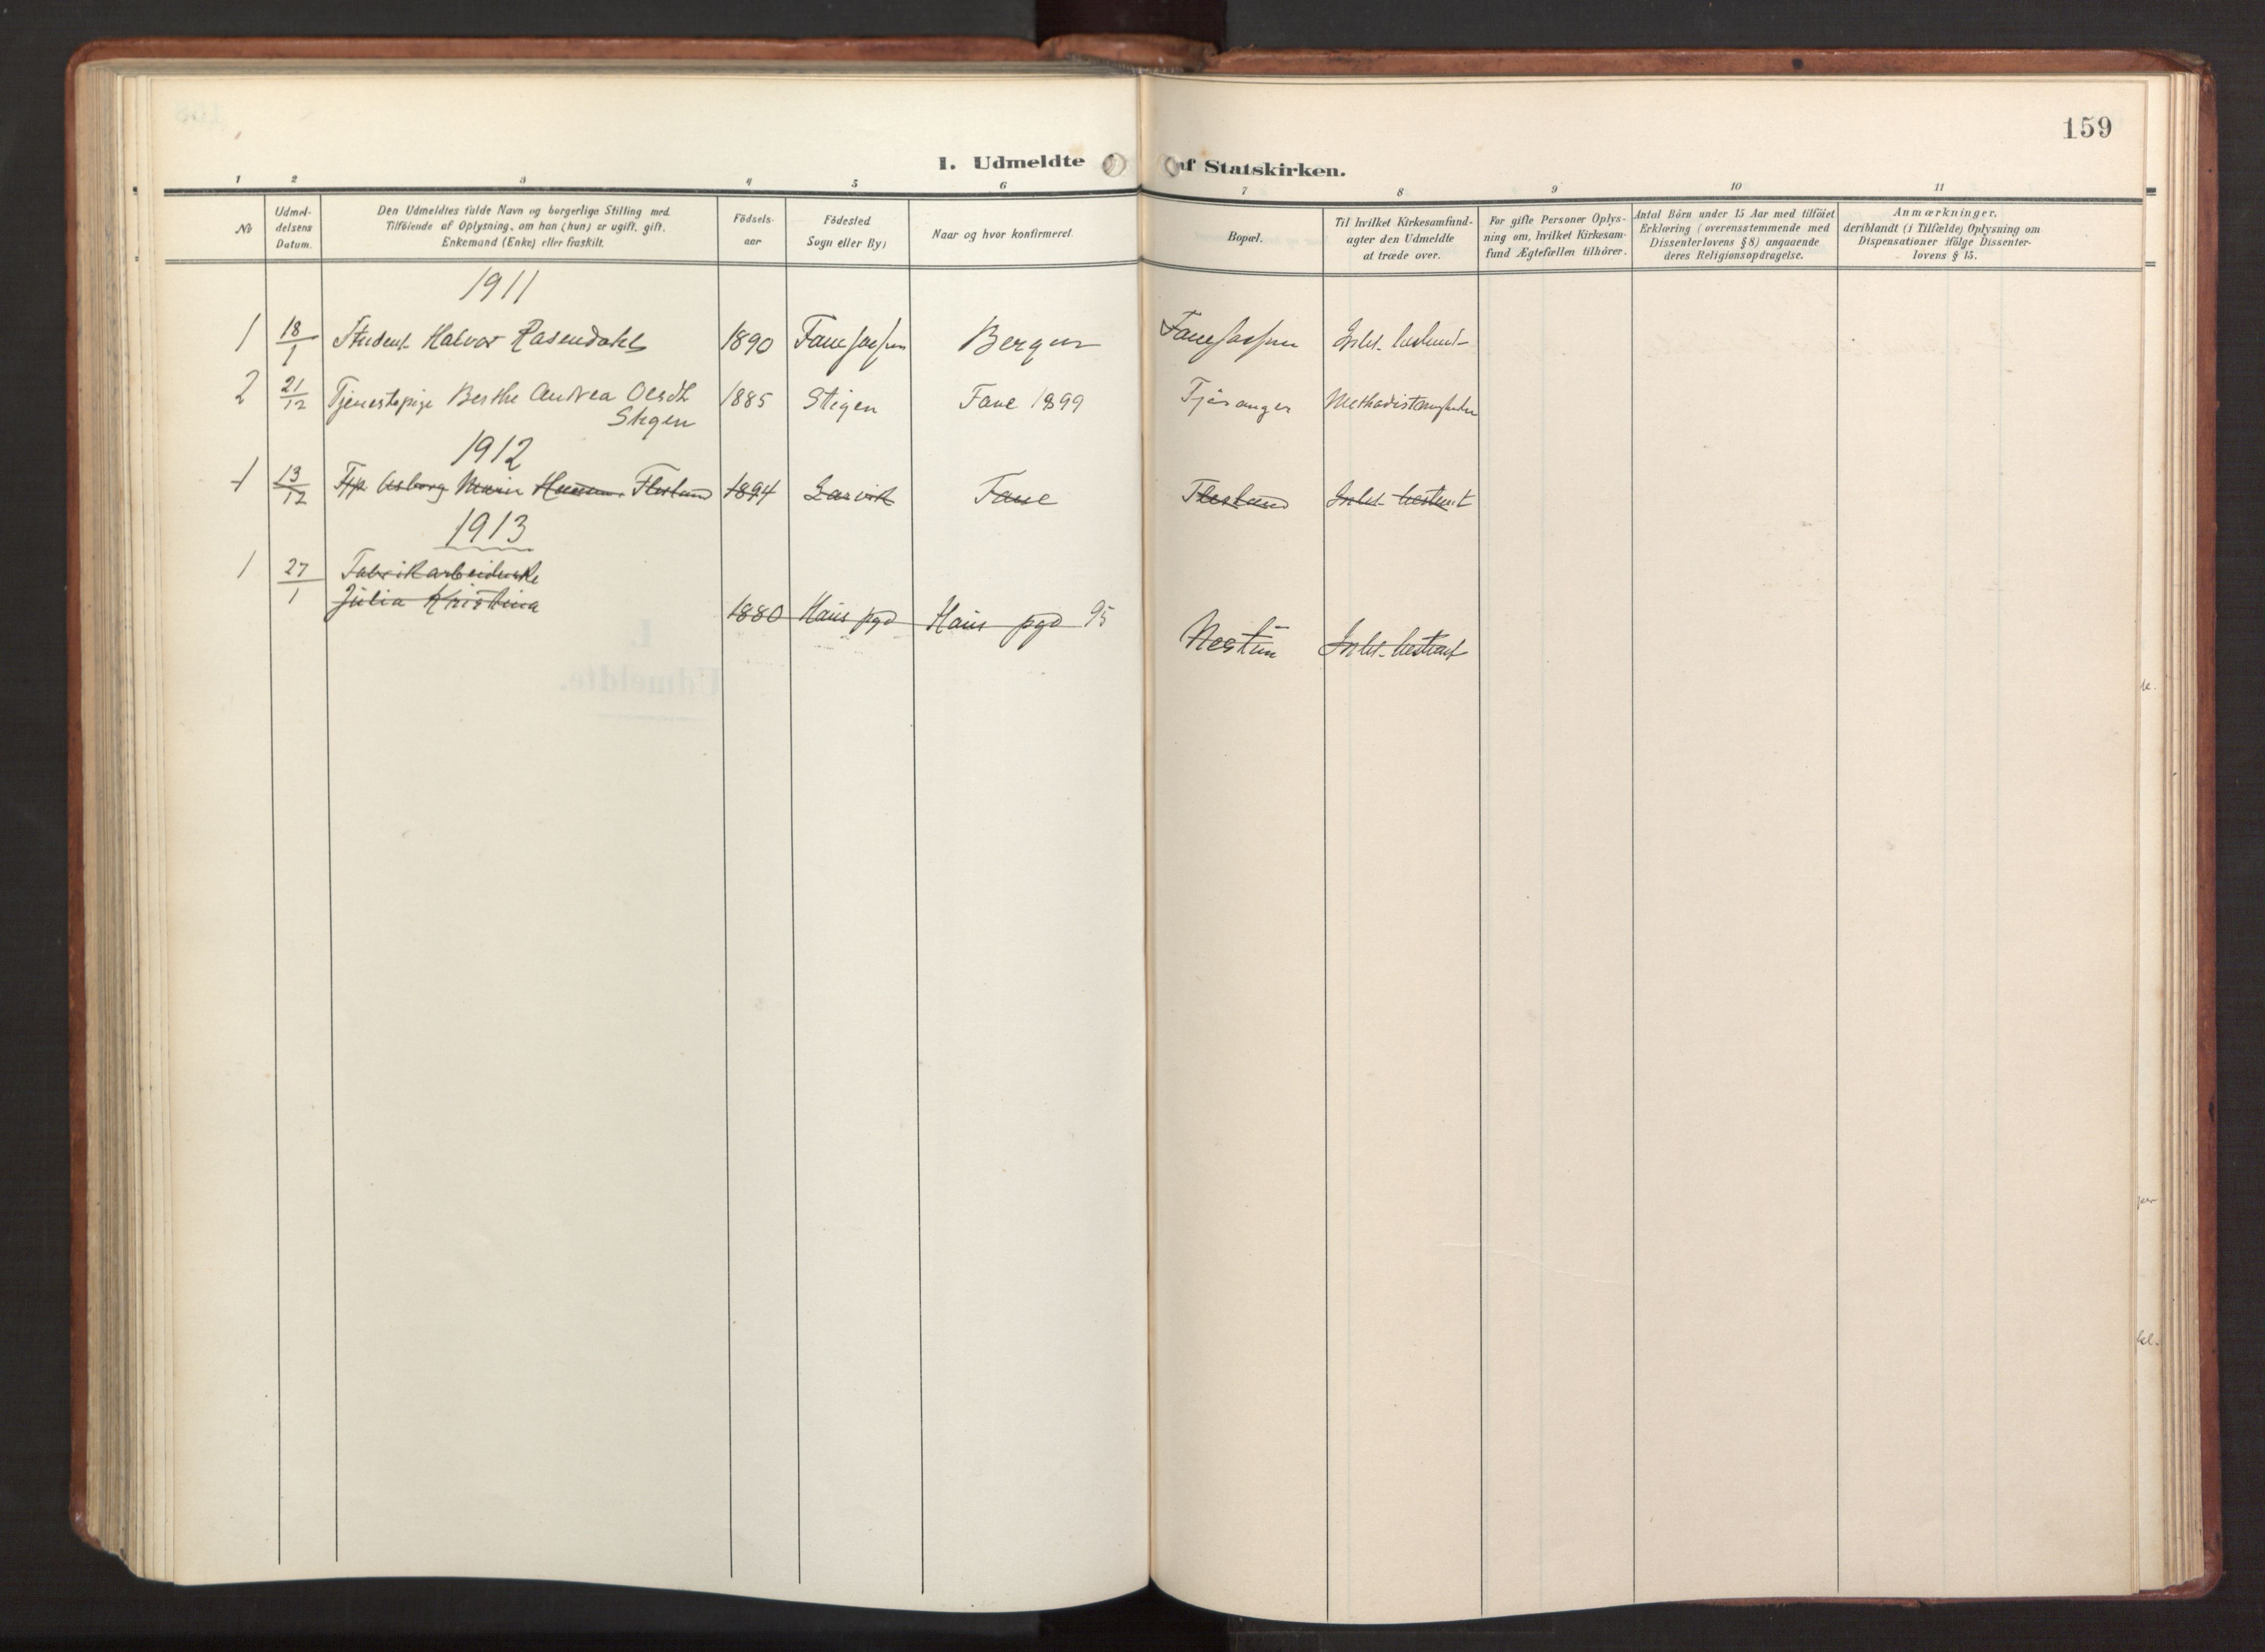 159
I. Udmeldte af Statskirken.
1 2 3 4 5 6 7 8 9 10 11
No
Udmel-
delsens
Datum.
Den Udmeldtes fulde Navn og borgerlige Stilling med
Tilföiende af Oplysning, om han (hun) er ugift, gift,
Enkemand (Enke) eller fraskilt.
Födsels-
aar
Födested
Sogn eller By)
Naar og hvor konfirmeret.
Bopæl.
Til hvilket Kirkesamfund-
agter den Udmeldte
at træde over.
For gifte Personer Oplys-
ning om, hvilket Kirkesam-
fund Ægtefællen tilhörer.
Antal Börn under 15 Aar med tilföiet
Erklæring (overensstemmende med
Dissenterlovens § 8) angaaende
deres Religionsopdragelse.
Anmærkninger,
deriblandt (i Tilfælde) Oplysning om
Dispensationer ifölge Dissenter-
lovens § 15.
1911
1 18/1 Student Halvor Rosendahl 1890 Bergen
2 21/12 Tjenestepige Berthe Andrea 1885 Stigen Fane 1899 Fjösanger
Stigen
1912
1 13/12 Marie Flesland 1894 Larvik Fane Flesland Intet bestemt
1913
1 27/1 Fabrikarbeiderske
Julia Kristina
1880 Haus pgd Haus pgd 95 Nestun Intet bestemt
I.
Udmeldte.